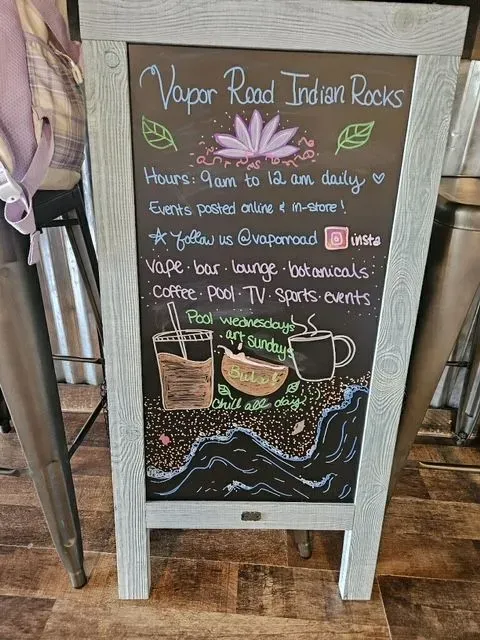 Vapor Road Indian Rocks
Hours: 9am to 12 am daily
Events posted online & in-store!
Follow us @vaporroad insta
vape · bar · lounge · botanicals ·
coffee · pool · TV · sports · events
Pool wednesdays
art sundays
Bula!
chill all day :)